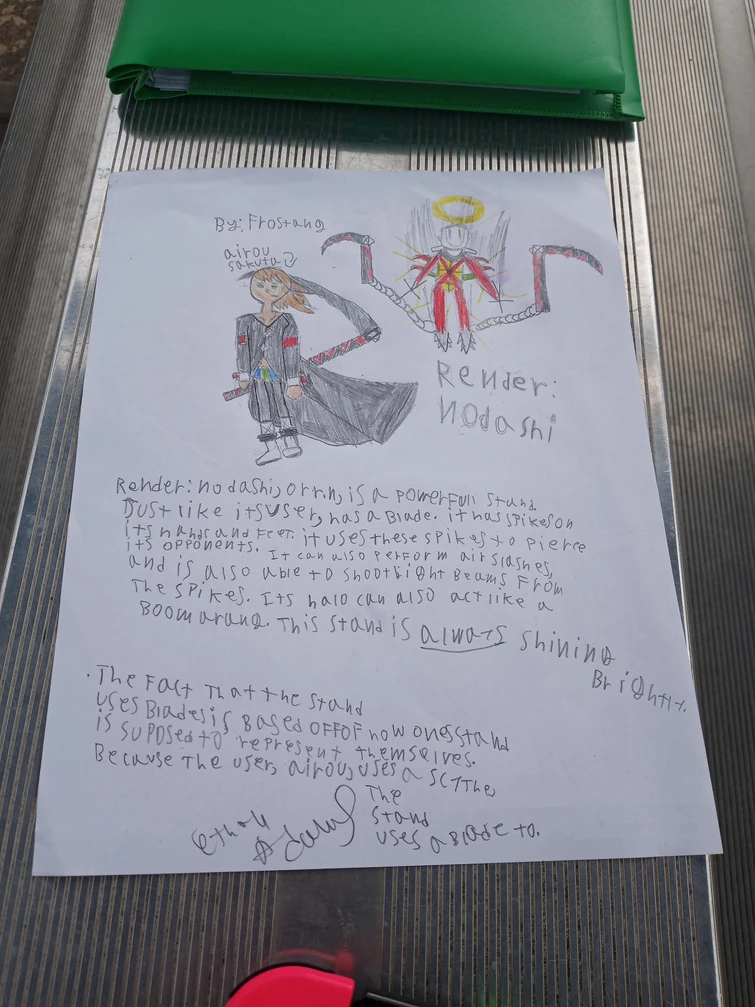 By: Frostang
airou
sakuta
Render:
nodashi
Render: nodashi, or r.n, is a powerfull stand.
Just like its user, has a Blade. it has spikes on
its hands and feet. it uses these spikes to pierce
its opponents. It can also perform air slashes,
and is also able to shoot light beams from
The spikes. Its halo can also act like a
Boomarang. This stand is always shining
Brightly.
. The fact that the stand
uses Blades is Based off of how ones stand
is supposed to represent themselves.
Because the user, airou, uses a scythe,
The
stand
uses a blade to.